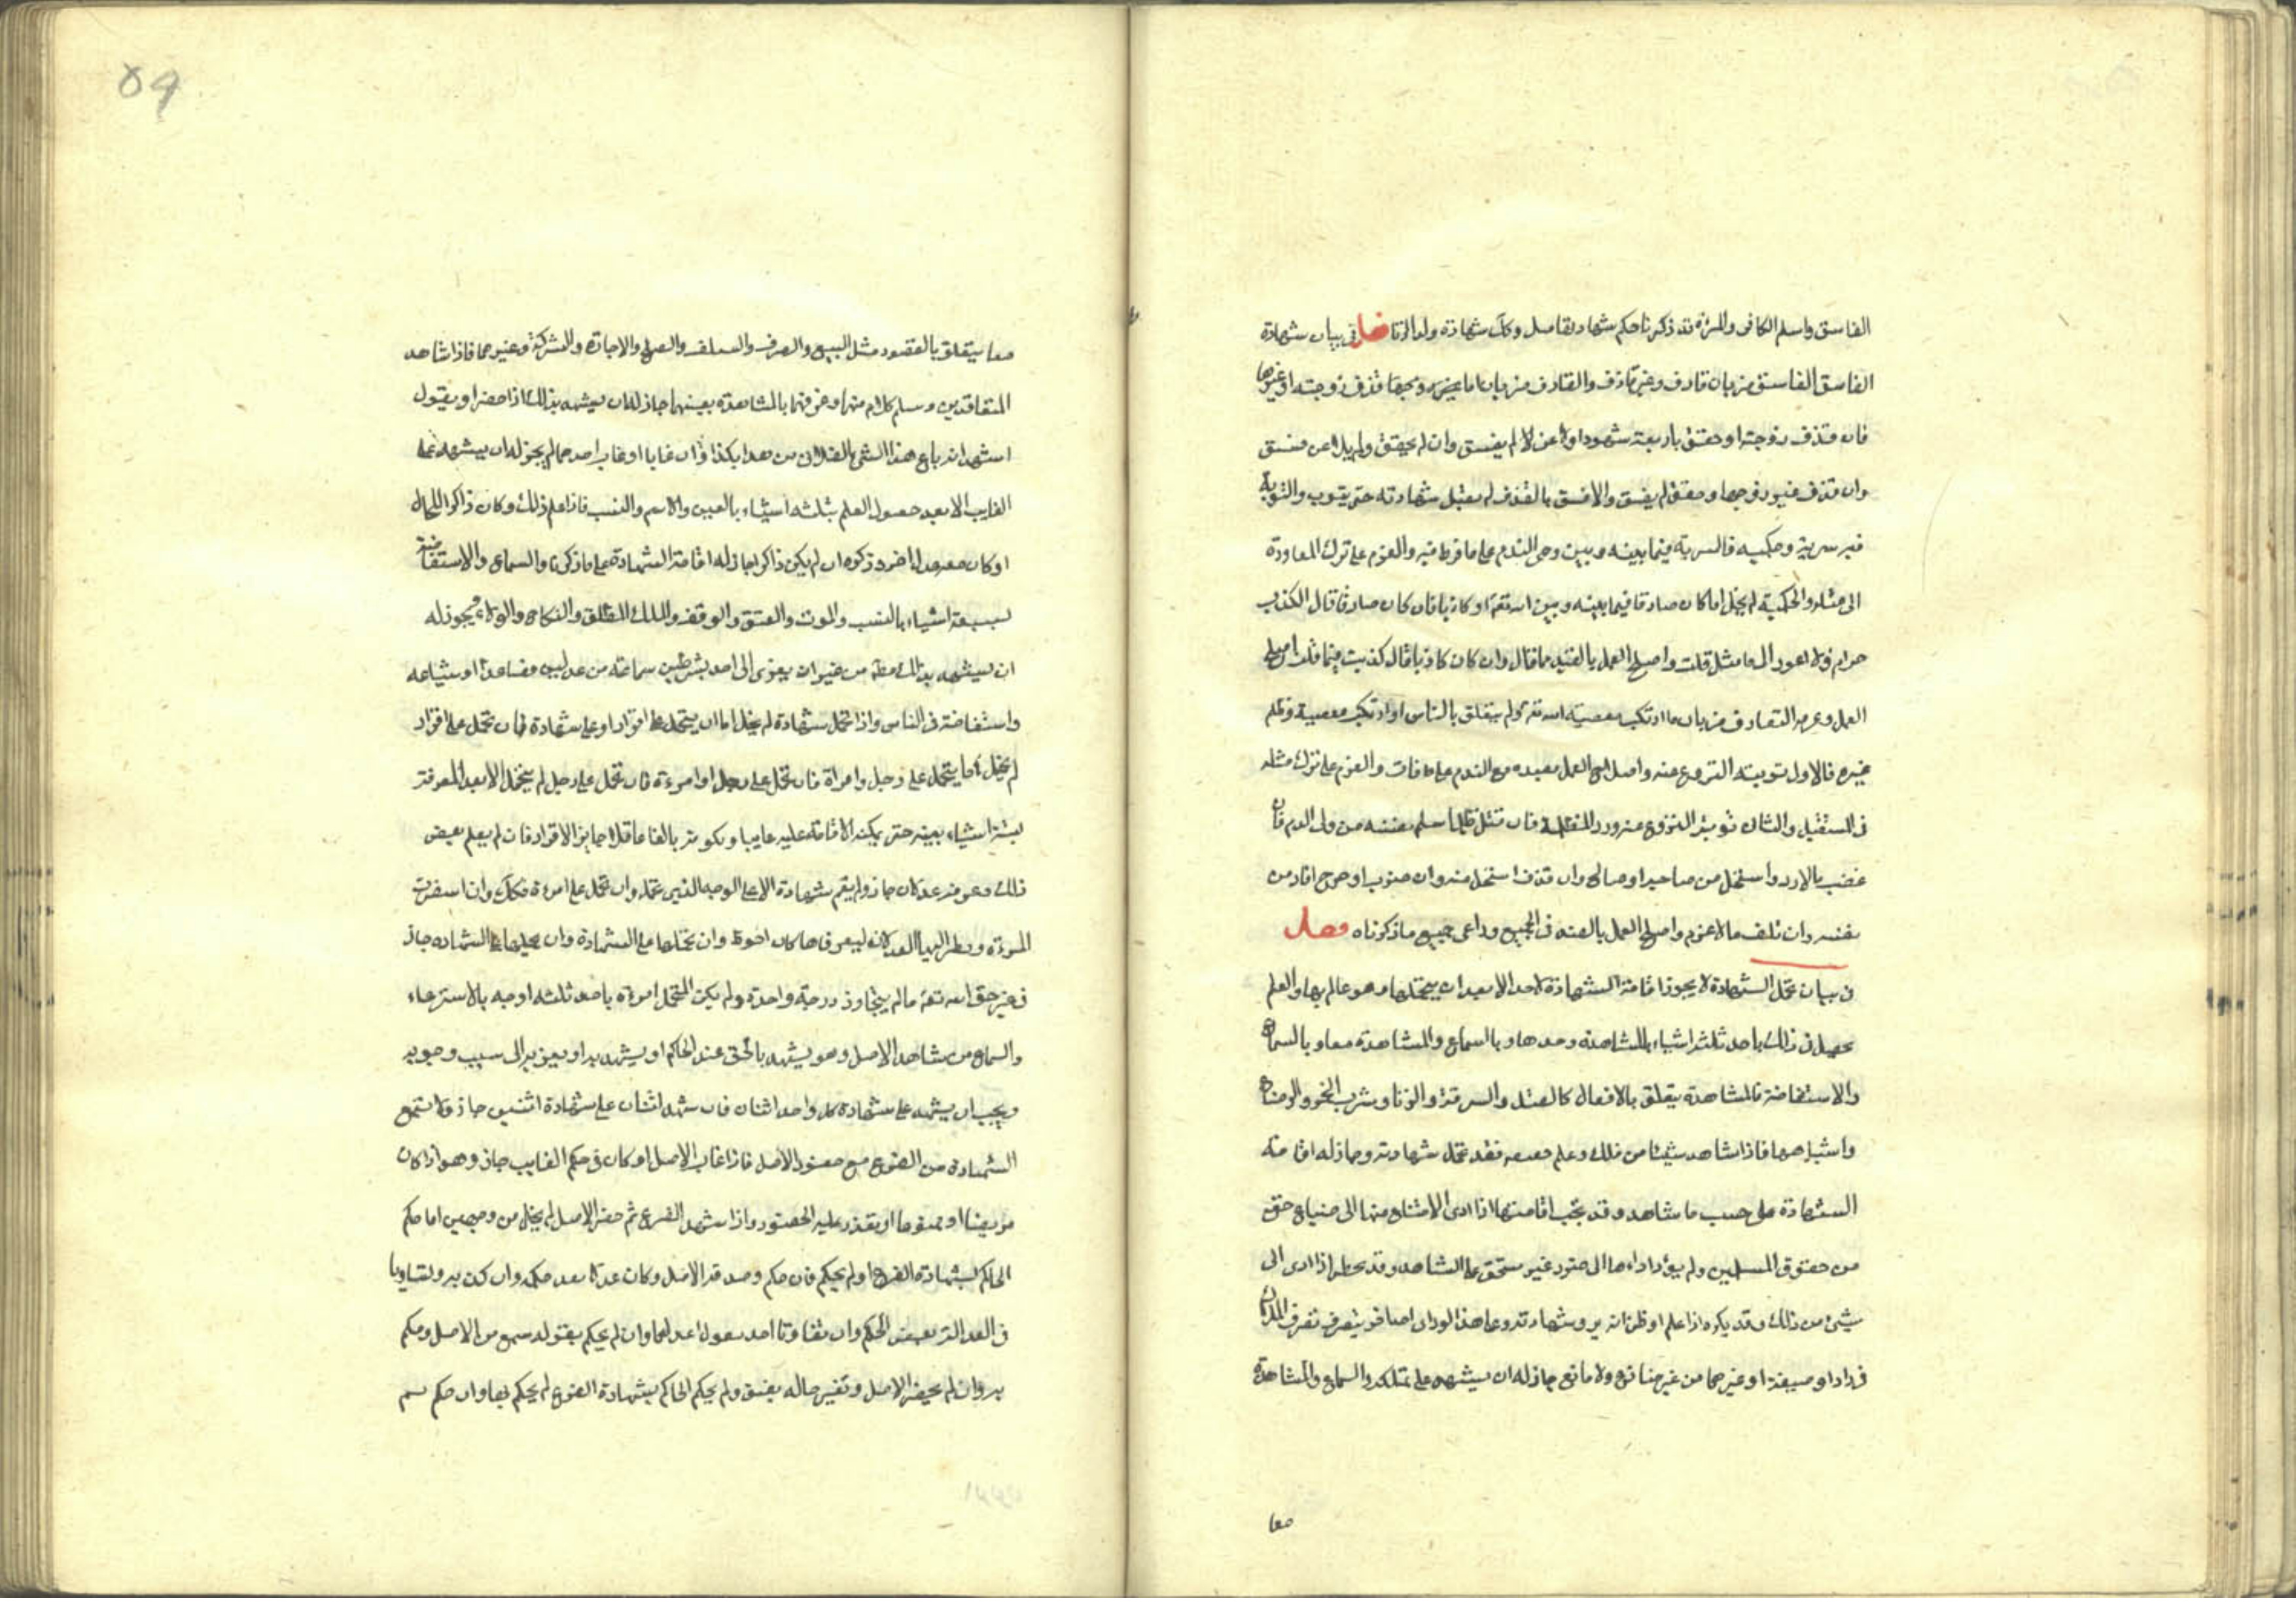 الفاسق واسلم الكافر والمرءة قد ذكرنا حكم شهادتها مسل وكك شهادة ولد الزنا فصل فى بيان شهادة
الفاسق الفاسق ضربان قاذف وغير قاذف والقاذف ضربان اما يخبر وبحقا قذف زوجته او غيرها
فان قذف زوجته او حقق باربعة شهود او لاعن لا لم يفسق وان لم يحقق ولم يلاعن فسق
وان قذف غير زوجها وحقق لم يفسق والا فسق بالقذف لم يقبل شهادته حتى يتوب والتوبة
فيه سرية وحكمية فالسرية فيما بينه وبين وهى الندم على ما فرط منه والعزم على ترك المعاودة
الى مثله والحكمية لم يخل اما كان صادقا فيما بينه وبين الله تعه او كاذبا فان كان صادقا قال الكذب
حرام ولا اعود الى ما مثل قلت واصلح العمل بالفتيل مما قال وان كان كاذبا قال كذبت فيما قلت واصلح
العمل وغير القاذف ضربان ما ارتكب معصية الله تعه ولم يتعلق بالناس او ارتكب معصية وظلم
غيره فالاول توبيته النزوع عنه واصلاح العمل بعيده مع الندم على ما فات والعزم على ترك مثله
فى المستقبل والثان توبته النزوع عنه ورد المظلمة فان قتل ظلما سلم نفسه من ولى الدم فان
غصب مالا رد واستحل من صاحبه او صالح وان قذف استحل منه وان ضرب او جرح اقاد من
نفسه وان تلف مالا غرم واصلح العمل بالصنه فى الجميع وراعى جميع ما ذكرناه فصل
فى بيان تحمل الشهادة لا يجوز اقامة الشهادة لاحد الا بعد ان يتحملها وهو عالم بها والعلم
يحصل فى ذلك باحد ثلثة اشياء بالمشاهدة وحدها وبالسماع والمشاهدة معا وبالسماع
والاستفاضة فالمشاهدة يتعلق بالافعال كالقتل والسرقة والزنا وشرب الخمر والرضاع
واشباهها فاذا شاهد شيئا من ذلك وعلم فقد تحمل شهادته وجاز له اقامة
الشهادة على حسب ما شاهد وقد يجب اقامتها اذا ادى الامتناع منها الى ضياع حق
من حقوق المسلمين ولم يؤد اداءها الى ضرر غير مستحق على الشاهد وقد يحظر اذا ادى الى
شيئ من ذلك وقد يكره اذا علم او ظن انه يرد شهادته وعلى هذا لو راى احدا فى يتصرف تصرف الملاك
فى دار او ضيعة او غيرهما من غير منازع ولا مانع جاز له ان يشهد على تملكه والسماع والمشاهدة
معا
معا يتعلق بالعقود مثل البيع والصرف والسلف والصلح والاجارة والشركة وغيرهما فاذا شاهد
المتعاقدين وسمع كلام منهما وعرفهما بالمشاهدة بعينهما جاز له ان يشهد بذلك اذا حضرا ويقول
اشهد انه باع هذا الشئ بالفلان من هذا بكذا وان غابا او غاب احدهما لم يجز له ان يشهد على
الغايب الا بعد حصول العلم بثلثه اشياء بالعين والاسم والنسب فاذا علم ذلك وكان ذاكرا للحال
او كان معه عدل اخر وذكره ان لم يكن ذاكرا جاز له اقامة الشهادة على ما ذكرنا والسماع والاستفاضة
لسبعة اشياء بالنسب والموت والعتق والوقف والملك المطلق والنكاح والولاء ويجوز له
ان يشهد بذلك مطه من غير ان يعزى الى احد بشرطين سماعه من عدلين فصاعدا او شياعه
واستفاضة فى الناس واذا تحمل شهادة لم يخل اما ان يتحمل على اقرار او على شهادة فان تحمل على اقرار
لم يخل اما يتحمل على رجل وامراة فان تحمل على رجل او امرءة فان تحمل على رجل لم يتحمل الا بعد المعرفة
لستة اشياء بعينه حتى يمكنه الاقامة عليه غايبا وبكونه بالغا عاقلا جايز الاقرار فان لم يعلم بعض
ذلك وعرفه عدلان جاز ولم يقم شهادة الا على الوجه الذى تحمله وان تحمل على امرءة فكك وان اسفرت
المرءة ونظر اليها العدلان ليعرفاها كان احوط وان تحملها على الشهادة وان على الشهادة جاز
فى غير حق الله تعه ما لم يتجاوز درجة واحدة ولم يكن المتحمل امرءة باحد ثلثه اوجه بالاسترعاء
والسماع من شاهد الاصل وهو يشهد بالحق عند الحاكم او يشهد به او يعزيه الى سبب وجوبه
ويجب ان يشهد على شهادة كل واحد اثنان فان شهد اثنان على شهادة اثنين جاز ولا تسمع
الشهادة من الفروع مع حضور الاصل فاذا غاب الاصل او كان فى حكم الغايب جاز وهو اذا كان
مريضا او ممنوعا او يتعذر عليه الحضور واذا شهد الفرع ثم حضر الاصل لم يخل من وجهين اما حكم
الحاكم بشهادة الفرع او لم يحكم فان حكم وصدقه الاصل وكان عدلا نفذ حكمه وان كذبه وتساويا
فى العدالة نقض الحكم وان تفاوتا اخذ بقول اعدلهما وان لم يحكم بقوله سمع من الاصل وحكم
به وان لم يحضر الاصل وتغير حاله بفسق ولم يحكم الحاكم بشهادة الفرع لم يحكم بها وان حكم ثم